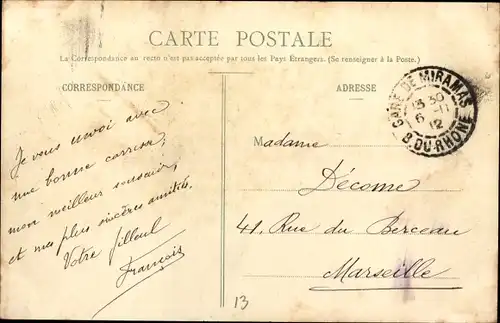 CARTE POSTALE
La Correspondance au recto n'est pas acceptée par tous les Pays Étrangers. (Se renseigner à la Poste.)
CORRESPONDANCE
ADRESSE
GARE DE MIRAMAS
13 30
6 -11
12
B. DU-RHÔNE
Je vous envoi avec
une bonne caresse,
mon meilleur souvenir,
et mes plus sincères amitiés.
Votre filleul
François
Madame
Décome
41, Rue du Berceau
Marseille
13